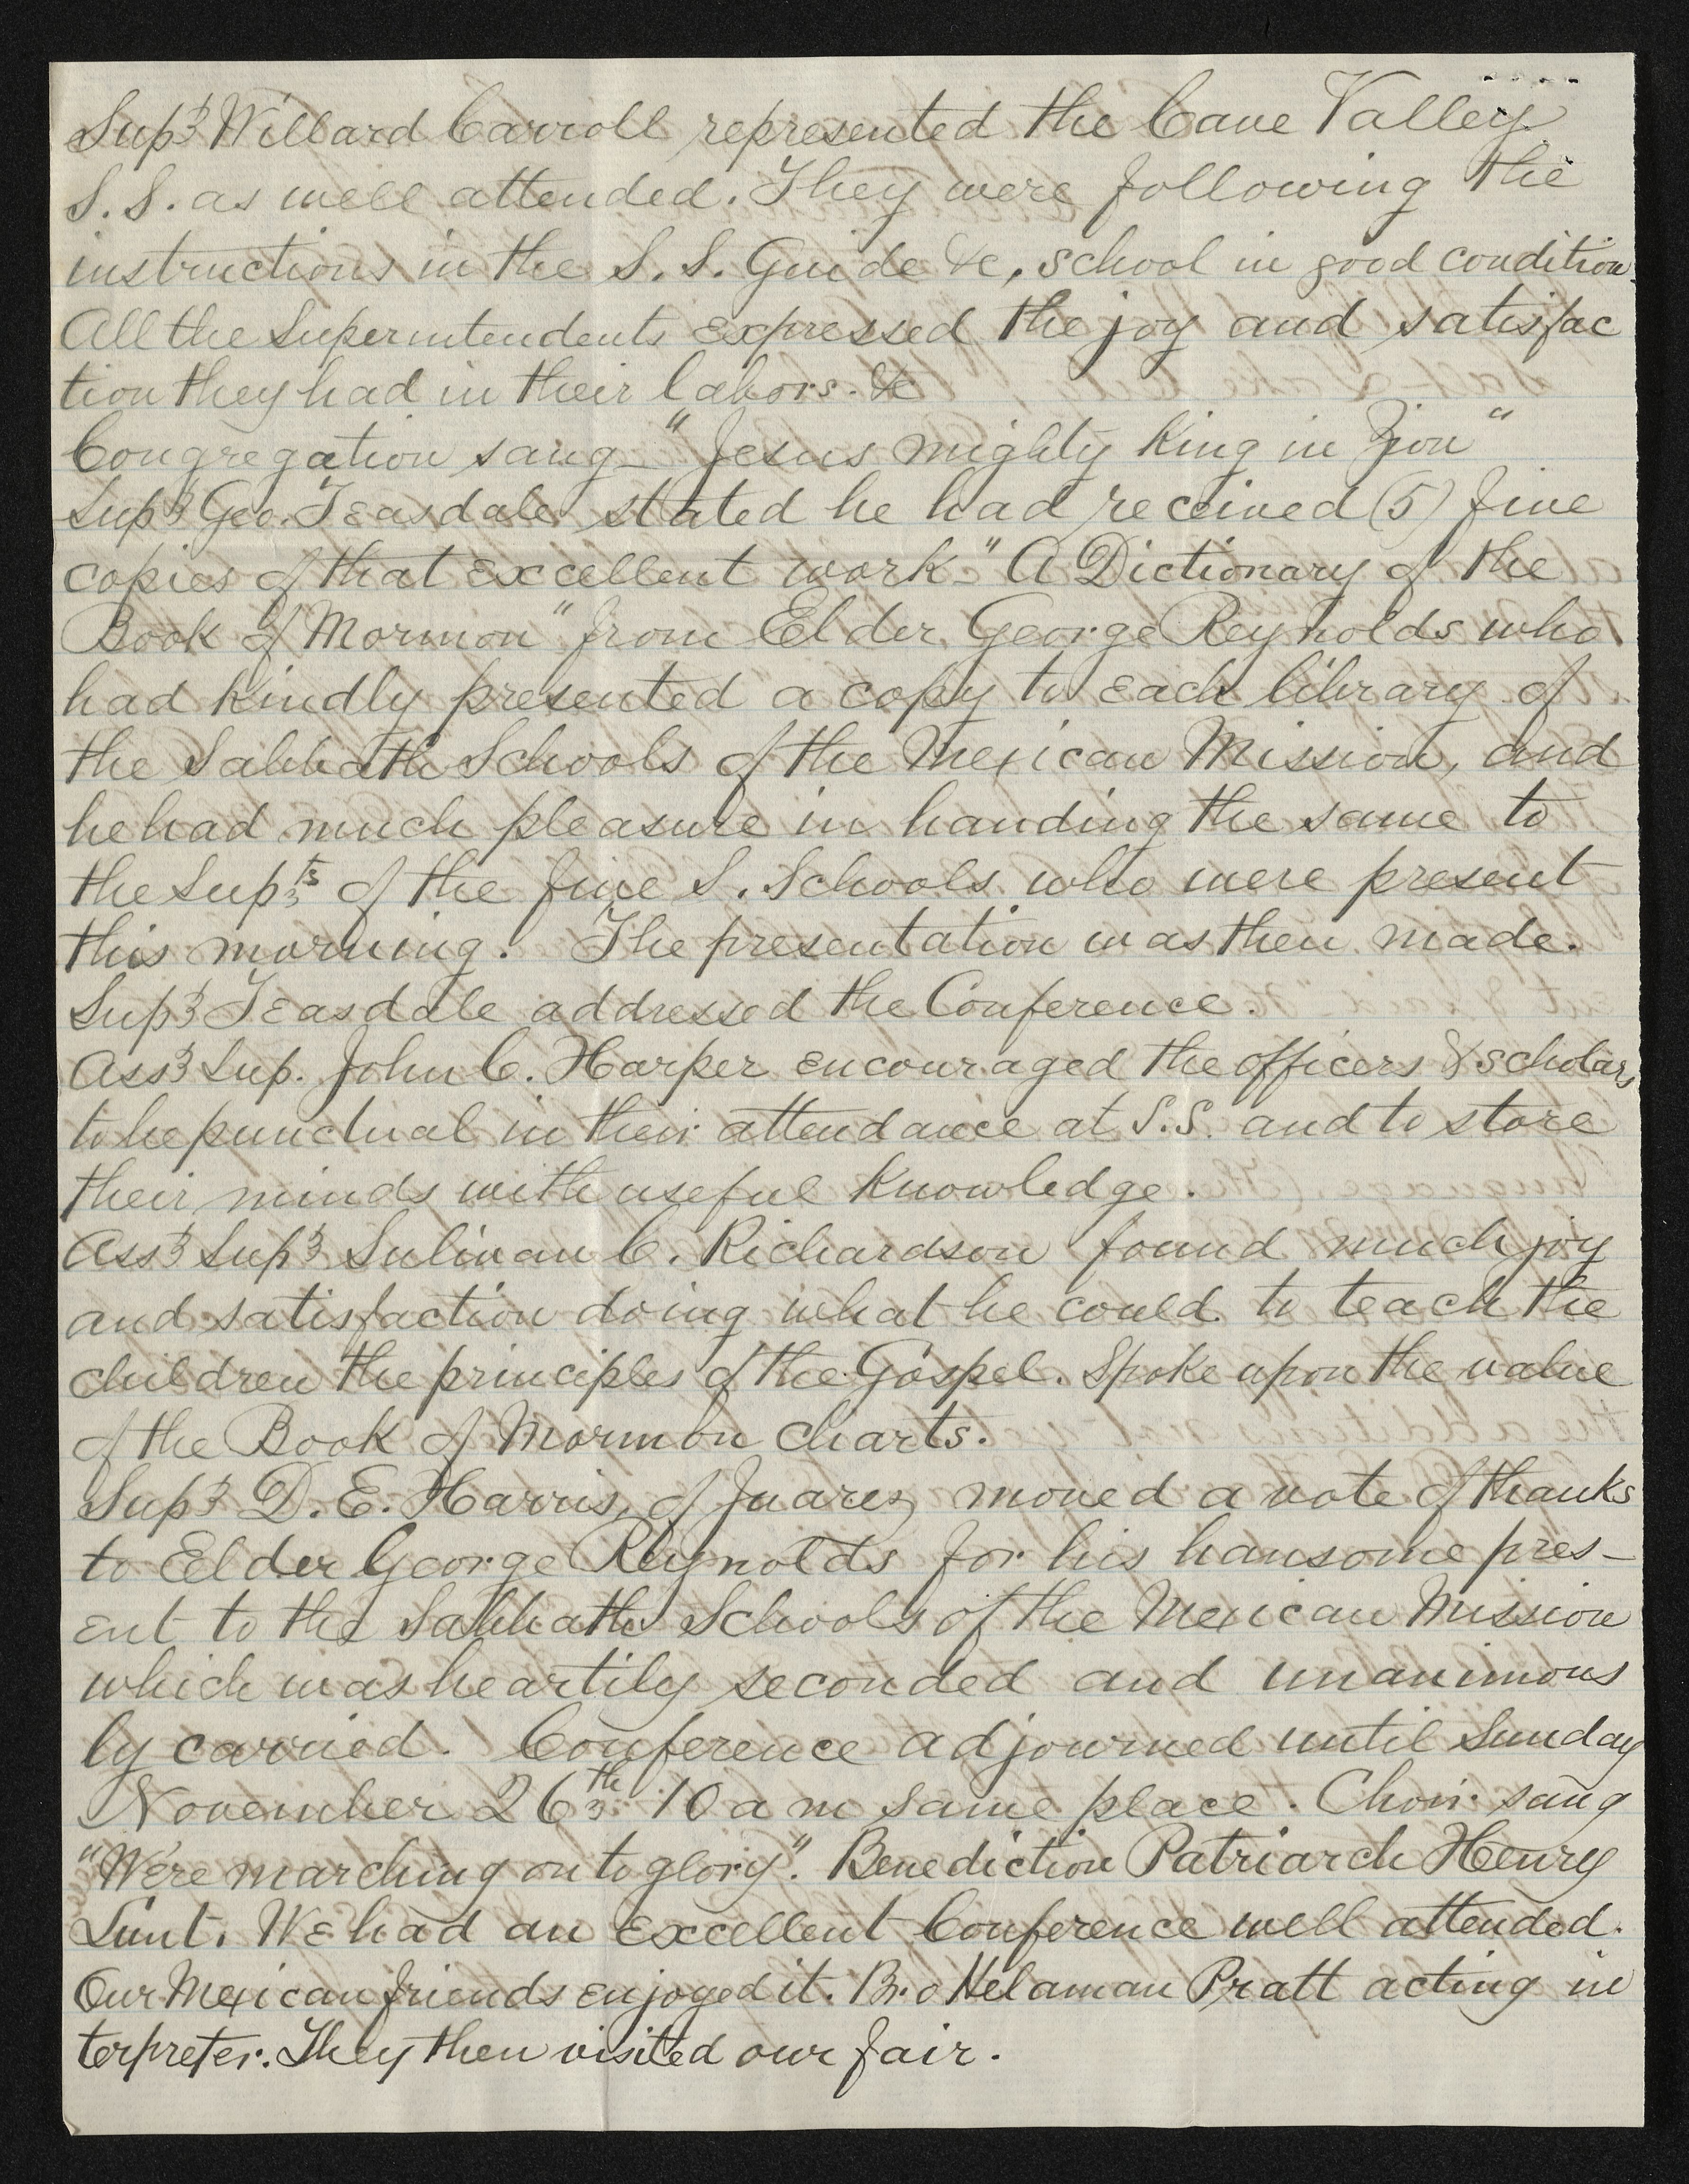 Supt Willard Carroll represented the Cave Valley
S. S. as well attended. They were following the
instructions in the S. S. Guide &c, school in good condition.
All the Superintendents expressed the joy and satisfac
tion they had in their labors. &c
Congregation sang - "Jesus mighty King in Zion"
Supt Geo. Teasdale stated he had received (5) five
copies of that excellent work - "A Dictionary of the
Book of Mormon" from Elder George Reynolds who
had kindly presented a copy to each library of
the Sabbath Schools of the Mexican Mission, and
he had much pleasure in handing the same to
the Supts of the five S. Schools who were present
this morning. The presentation was then made.
Supt Teasdale addressed the Conference.
Asst Sup. John C. Harper encouraged the officers & scholars
to be punctual in their attendance at S.S. and to store
their minds with useful knowledge.
Asst Supt Sulivan C. Richardson found much joy
and satisfaction doing what he could to teach the
children the principles of the Gospel. Spoke upon the value
of the Book of Mormon Charts.
Supt D. E. Harris, of Juarez, moved a vote of thanks
to Elder George Reynolds for his hansome pres-
ent to the Sabbath Schools of the Mexican Mission
which was heartily seconded and unanimous
ly carried. Conference adjourned until Sunday
November 26th 10 a m same place. Choir sang
"We're marching on to glory". Benediction Patriarch Henry
Lunt. We had an excellent Conference well attended.
Our Mexican friends enjoyed it. Bro Helaman Pratt acting in
terpreter. They then visited our fair.